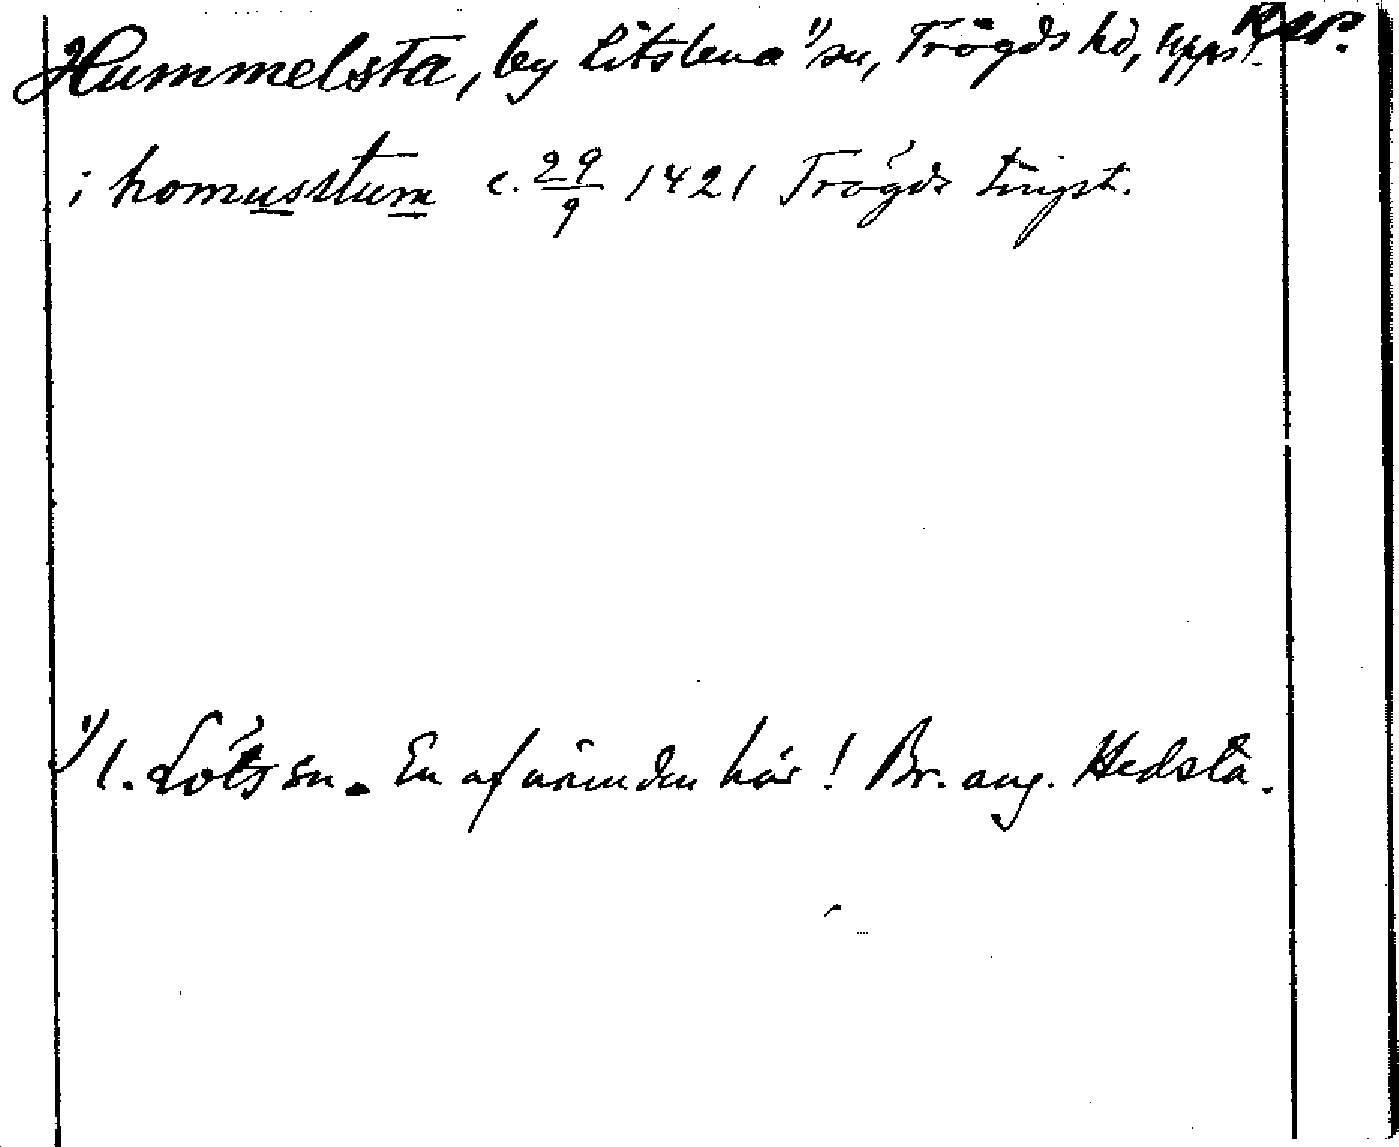 Hummelsta, by Litslena ¹) sn, Trögds hd, Uppsl. Rap.
i homusstum c. 29/9 1421 Trögds tingst.
¹) l. Löts sn. En af nämnden här! Br. ang. Hedsta.